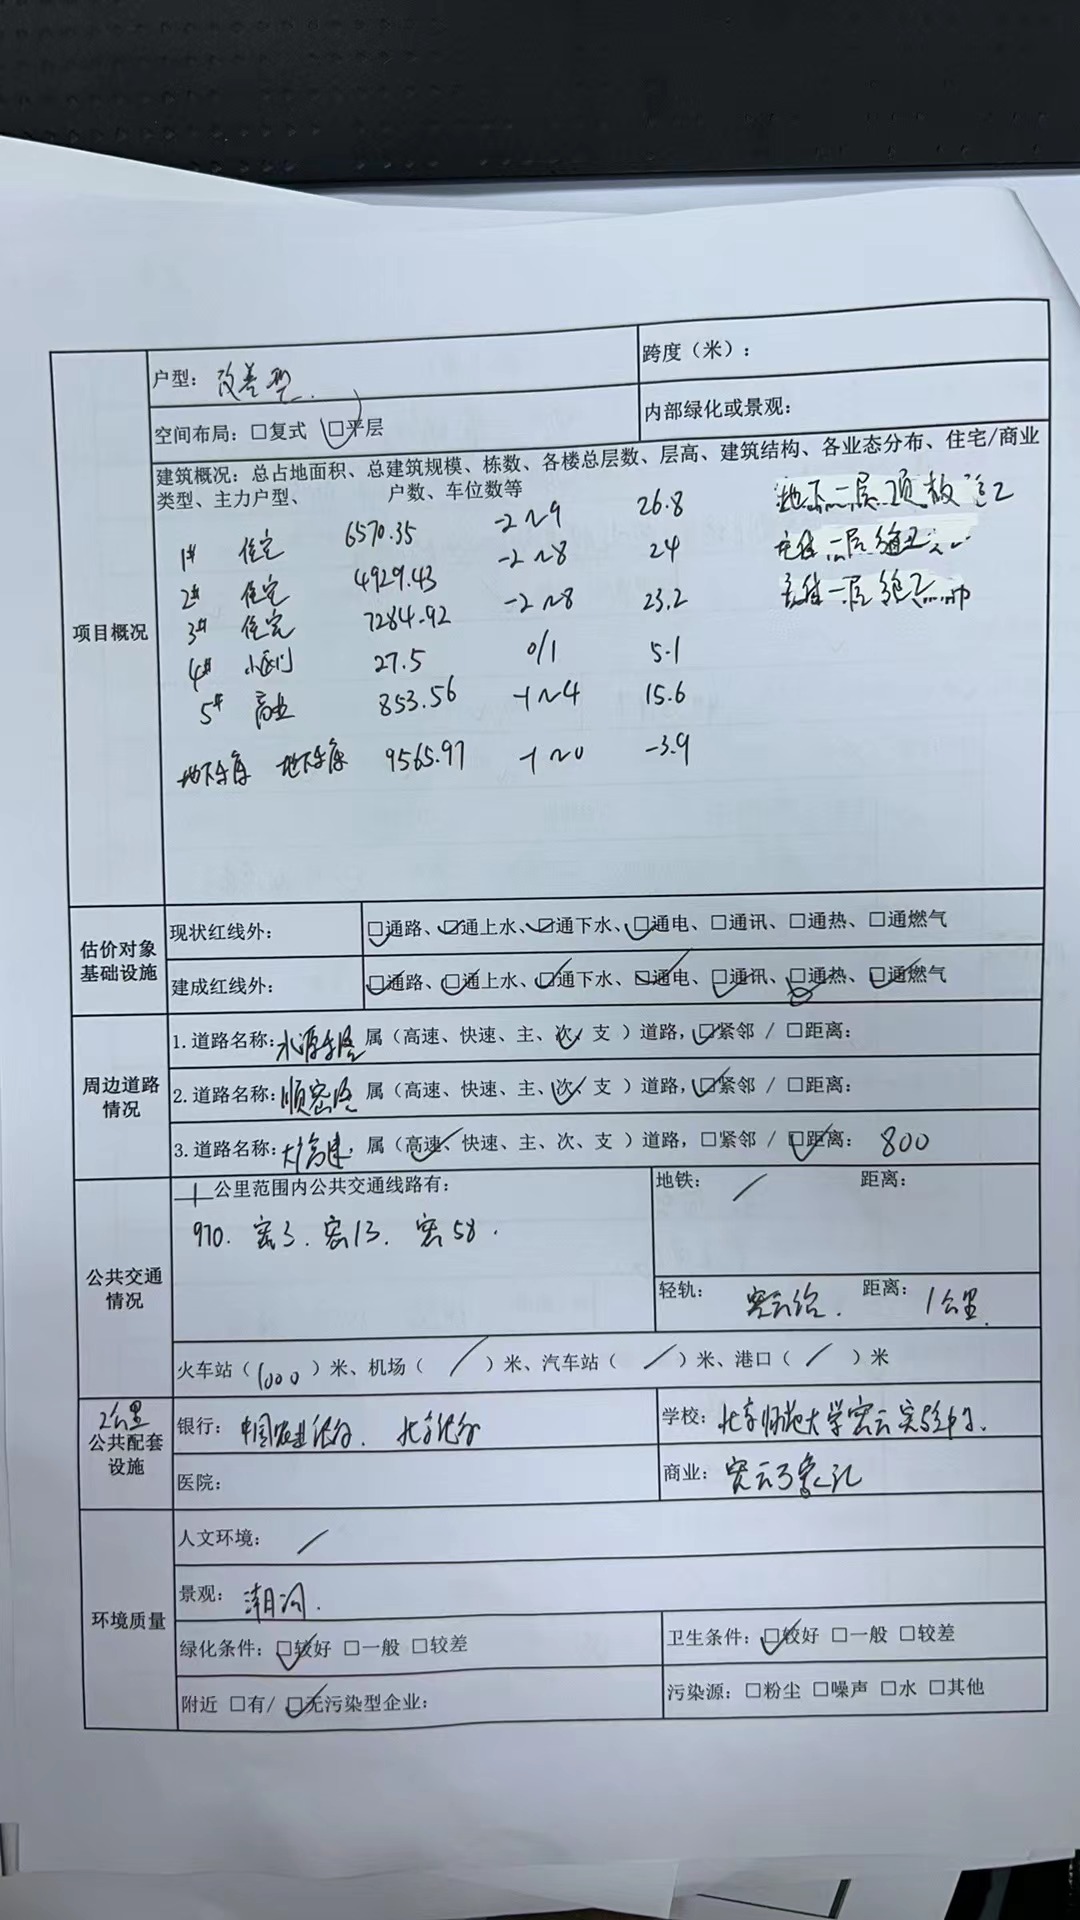 户型：改善型.
跨度（米）：
空间布局：□复式 □平层
内部绿化或景观：
项目概况
建筑概况：总占地面积、总建筑规模、栋数、各楼总层数、层高、建筑结构、各业态分布、住宅/商业
类型、主力户型、 户数、车位数等
1# 住宅 6570.35 -2~9 26.8 地下二层顶板
2# 住宅 4929.43 -2~8 24 二层
3# 住宅 7284.92 -2~8 23.2 一层
4# 27.5 0/1 5.1
5# 商业 853.56 -1~4 15.6
地下车库 地下车库 9565.97 -1~0 -3.9
估价对象
基础设施
现状红线外：
□通路、□通上水、□通下水、□通电、□通讯、□通热、□通燃气
建成红线外：
□通路、□通上水、□通下水、□通电、□通讯、□通热、□通燃气
周边道路
情况
1.道路名称：水源路 属（高速、快速、主、次、支 ）道路，□紧邻 / □距离：
2.道路名称：顺密路 属（高速、快速、主、次、支 ）道路，□紧邻 / □距离：
3.道路名称：大广高速，属（高速、快速、主、次、支 ）道路，□紧邻 / □距离： 800
公共交通
情况
1公里范围内公共交通线路有：
970. 密3. 密13. 密58.
地铁： / 距离：
轻轨： 密云站. 距离： 1公里.
火车站（1000）米、机场（ / ）米、汽车站（ / ）米、港口（ / ）米
2公里
公共配套
设施
银行：中国农业银行. 北京银行
学校：北京师范大学密云实验中学.
医院：
商业：密云万象汇
环境质量
人文环境： /
景观：潮河.
绿化条件：□较好 □一般 □较差
卫生条件：□较好 □一般 □较差
附近 □有/ □无污染型企业：
污染源：□粉尘 □噪声 □水 □其他